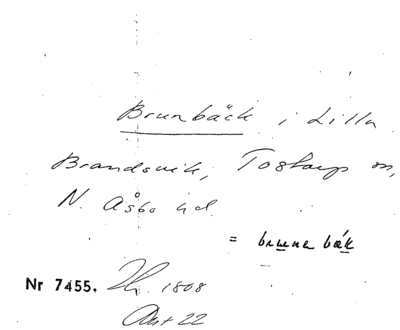 Brunbäck i Lilla
Brandsvik, Tostarp sn,
N. Åsbo hd.
= brunna bák
Nr 7455. 1808
Akt 22